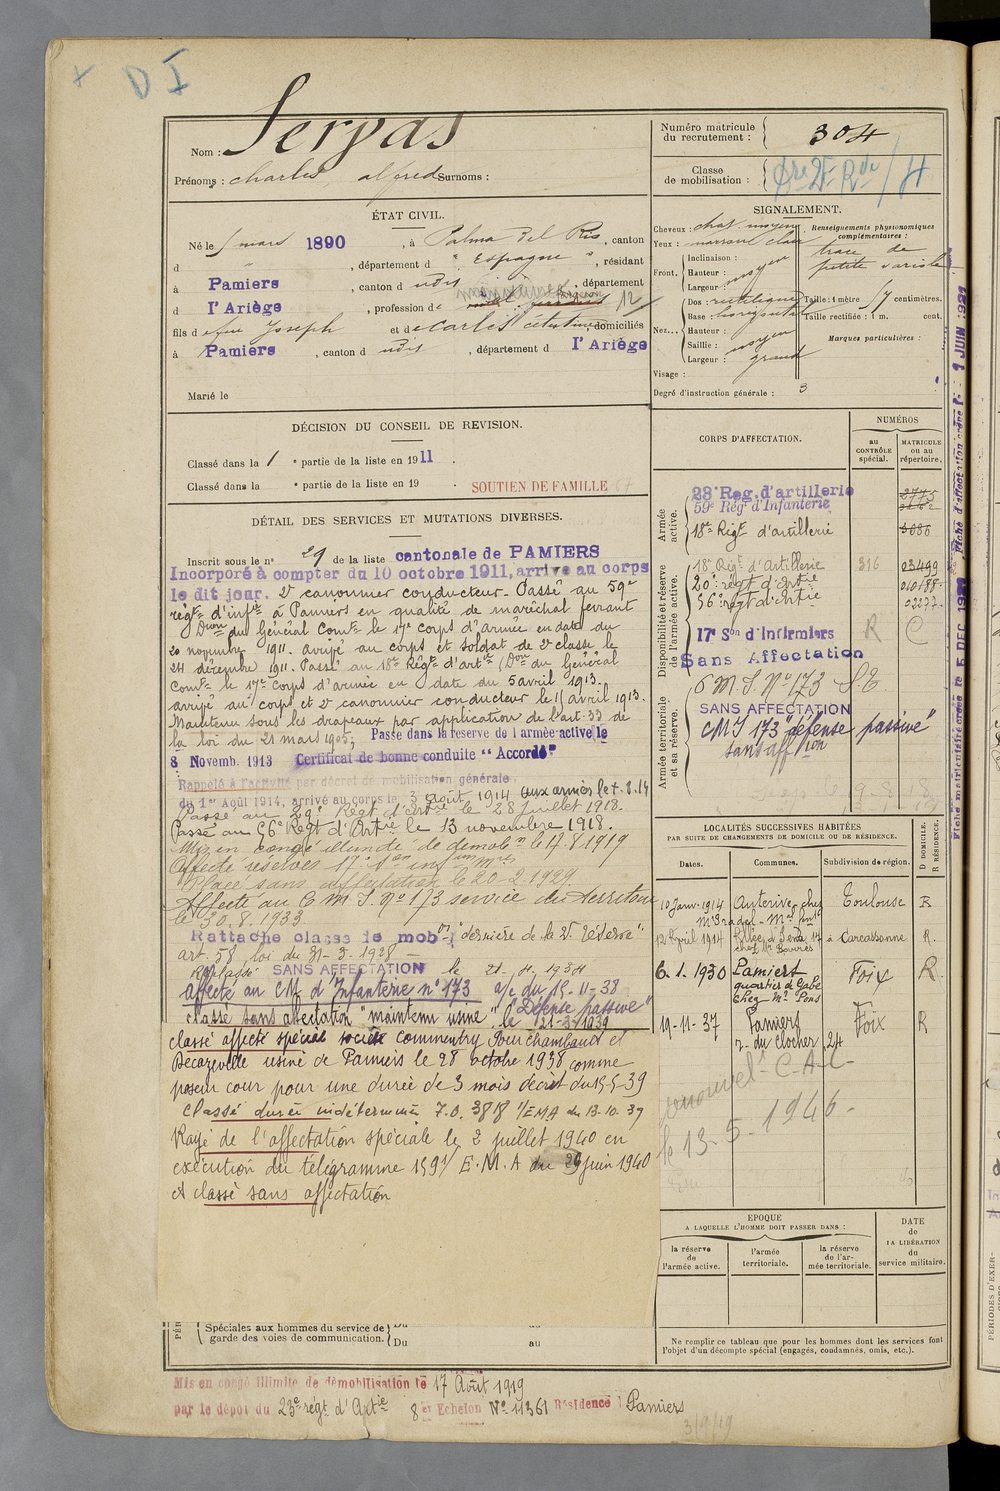 DI
Nom : Servas
Prénoms : Charles Alfred Surnoms :
Numéro matricule du recrutement : 304
Classe de mobilisation :
ÉTAT CIVIL.
Né le 5 mars 1890, à Palma Del Rio, canton
d " , département d " Espagne ", résidant
à Pamiers, canton d udit, département
d l'Ariège, profession de
fils de feu Joseph et de Carles Célestine, domiciliés
à Pamiers, canton d udit, département d l'Ariège
Marié le
SIGNALEMENT.
Cheveux : chat. moyen
Yeux : marrons clair
Front. Inclinaison :
Hauteur : moyen
Largeur :
Nez... Dos : rectiligne
Base : horizontal
Hauteur :
Saillie : moyen
Largeur : grand
Visage :
Renseignements physionomiques complémentaires :
trace de
petite variole
Taille : 1 mètre 57 centimètres.
Taille rectifiée : 1 m. cent.
Marques particulières :
Degré d'instruction générale : 3
DÉCISION DU CONSEIL DE REVISION.
Classé dans la 1e partie de la liste en 1911.
Classé dans la e partie de la liste en 19 . SOUTIEN DE FAMILLE
DÉTAIL DES SERVICES ET MUTATIONS DIVERSES.
Inscrit sous le n° 29 de la liste cantonale de PAMIERS
Incorporé à compter du 10 octobre 1911, arrive au corps
le dit jour. 2e canonnier conducteur. Passé au 59e
régt d'infie à Pamiers en qualité de maréchal ferrant
Don du Général Comt le 17e corps d'armée en date du
20 novembre 1911. arrivé au corps et soldat de 2e classe le
24 décembre 1911. Passé au 18e Régt d'artie (Don du Général
Comt le 17e corps d'armée en date du 5 avril 1913.
arrivé au corps et 2e canonnier conducteur le 11 avril 1913.
Maintenu sous les drapeaux par application de l'art. 33 de
la loi du 21 mars 1905; Passé dans la réserve de l'armée active le
8 Novemb. 1913 Certificat de bonne conduite "Accordé"
Rappelé à l'activité par décret de mobilisation générale
du 1er Août 1914, arrivé au corps le 3 août 1914 aux armées le 4.8.14
Passé au 20e Régt d'Artie le 28 juillet 1918.
Passé au 56e Régt d'Artie le 13 novembre 1918.
Mis en congé illimité de démobon le 17.8.1919
Affecté réserves 17e Son infiers mres
Placé sans affectation le 20-2-1929
Affecté au C M I. N° 173 service du territoire
le 30.8.1933
Rattaché classe de mobon "dernière de la 2e réserve"
art. 58 loi du 31-3-1928
Replacé SANS AFFECTATION le 21.4.1934
Affecté au CM d'Infanterie n° 173 a/c du 15-11-38
"Défense passive"
classé sans affectation "maintenu usine" le 21-3-1939
classé affecté spécial société commentry Fourchambaud et
Decazeville usine de Pamiers le 28 octobre 1938 comme
poseur cour pour une durée de 3 mois décret du 15-5-39
Classé durée indéterminée 7.0. 3818 1/EMA du 13-10-39
Rayé de l'affectation spéciale le 2 juillet 1940 en
exécution du télégramme 1591/E.M.A du 29 juin 1940
et classé sans affectation
CORPS D'AFFECTATION.
NUMÉROS
au CONTRÔLE spécial.
MATRICULE ou au répertoire.
Armée active.
23e Reg. d'artillerie 2775
59e Rég d'Infanterie
18e Régt d'artillerie 3086
Disponibilité et réserve de l'armée active.
18e Régt d'Artillerie 316 03499
20e régt d'Artie
56e régt d'Artie
17e Son d'Infirmiers R C
Sans Affectation
Armée territoriale et sa réserve.
C M I. N° 173 S.T
SANS AFFECTATION
CMI 173 "défense passive"
sans affon
LOCALITÉS SUCCESSIVES HABITÉES
PAR SUITE DE CHANGEMENTS DE DOMICILE OU DE RÉSIDENCE.
Dates. Communes. Subdivision de région. D DOMICILE. R RÉSIDENCE.
10 Janv. 1914 Auterive chez Toulouse R
12 Avril 1914 Carcassonne R.
6.1.1930 Pamiers Foix R
quartier de Gabé
chez Mr Pons
19-11-37 Pamiers Foix R
r. du clocher 24
C.A.C
le 13-5-1946
EPOQUE
A LAQUELLE L'HOMME DOIT PASSER DANS :
la réserve de l'armée active.
l'armée territoriale.
la réserve de l'armée territoriale.
DATE de LA LIBÉRATION du service militaire.
Ne remplir ce tableau que pour les hommes dont les services font
l'objet d'un décompte spécial (engagés, condamnés, omis, etc.).
Spéciales aux hommes du service de garde des voies de communication. Du au
Du au
Mis en congé illimité de démobilisation le 17 Août 1919
par le dépôt du 23e régt d'Artie 8e Echelon N° 11361 Résidence Pamiers
3/9/19